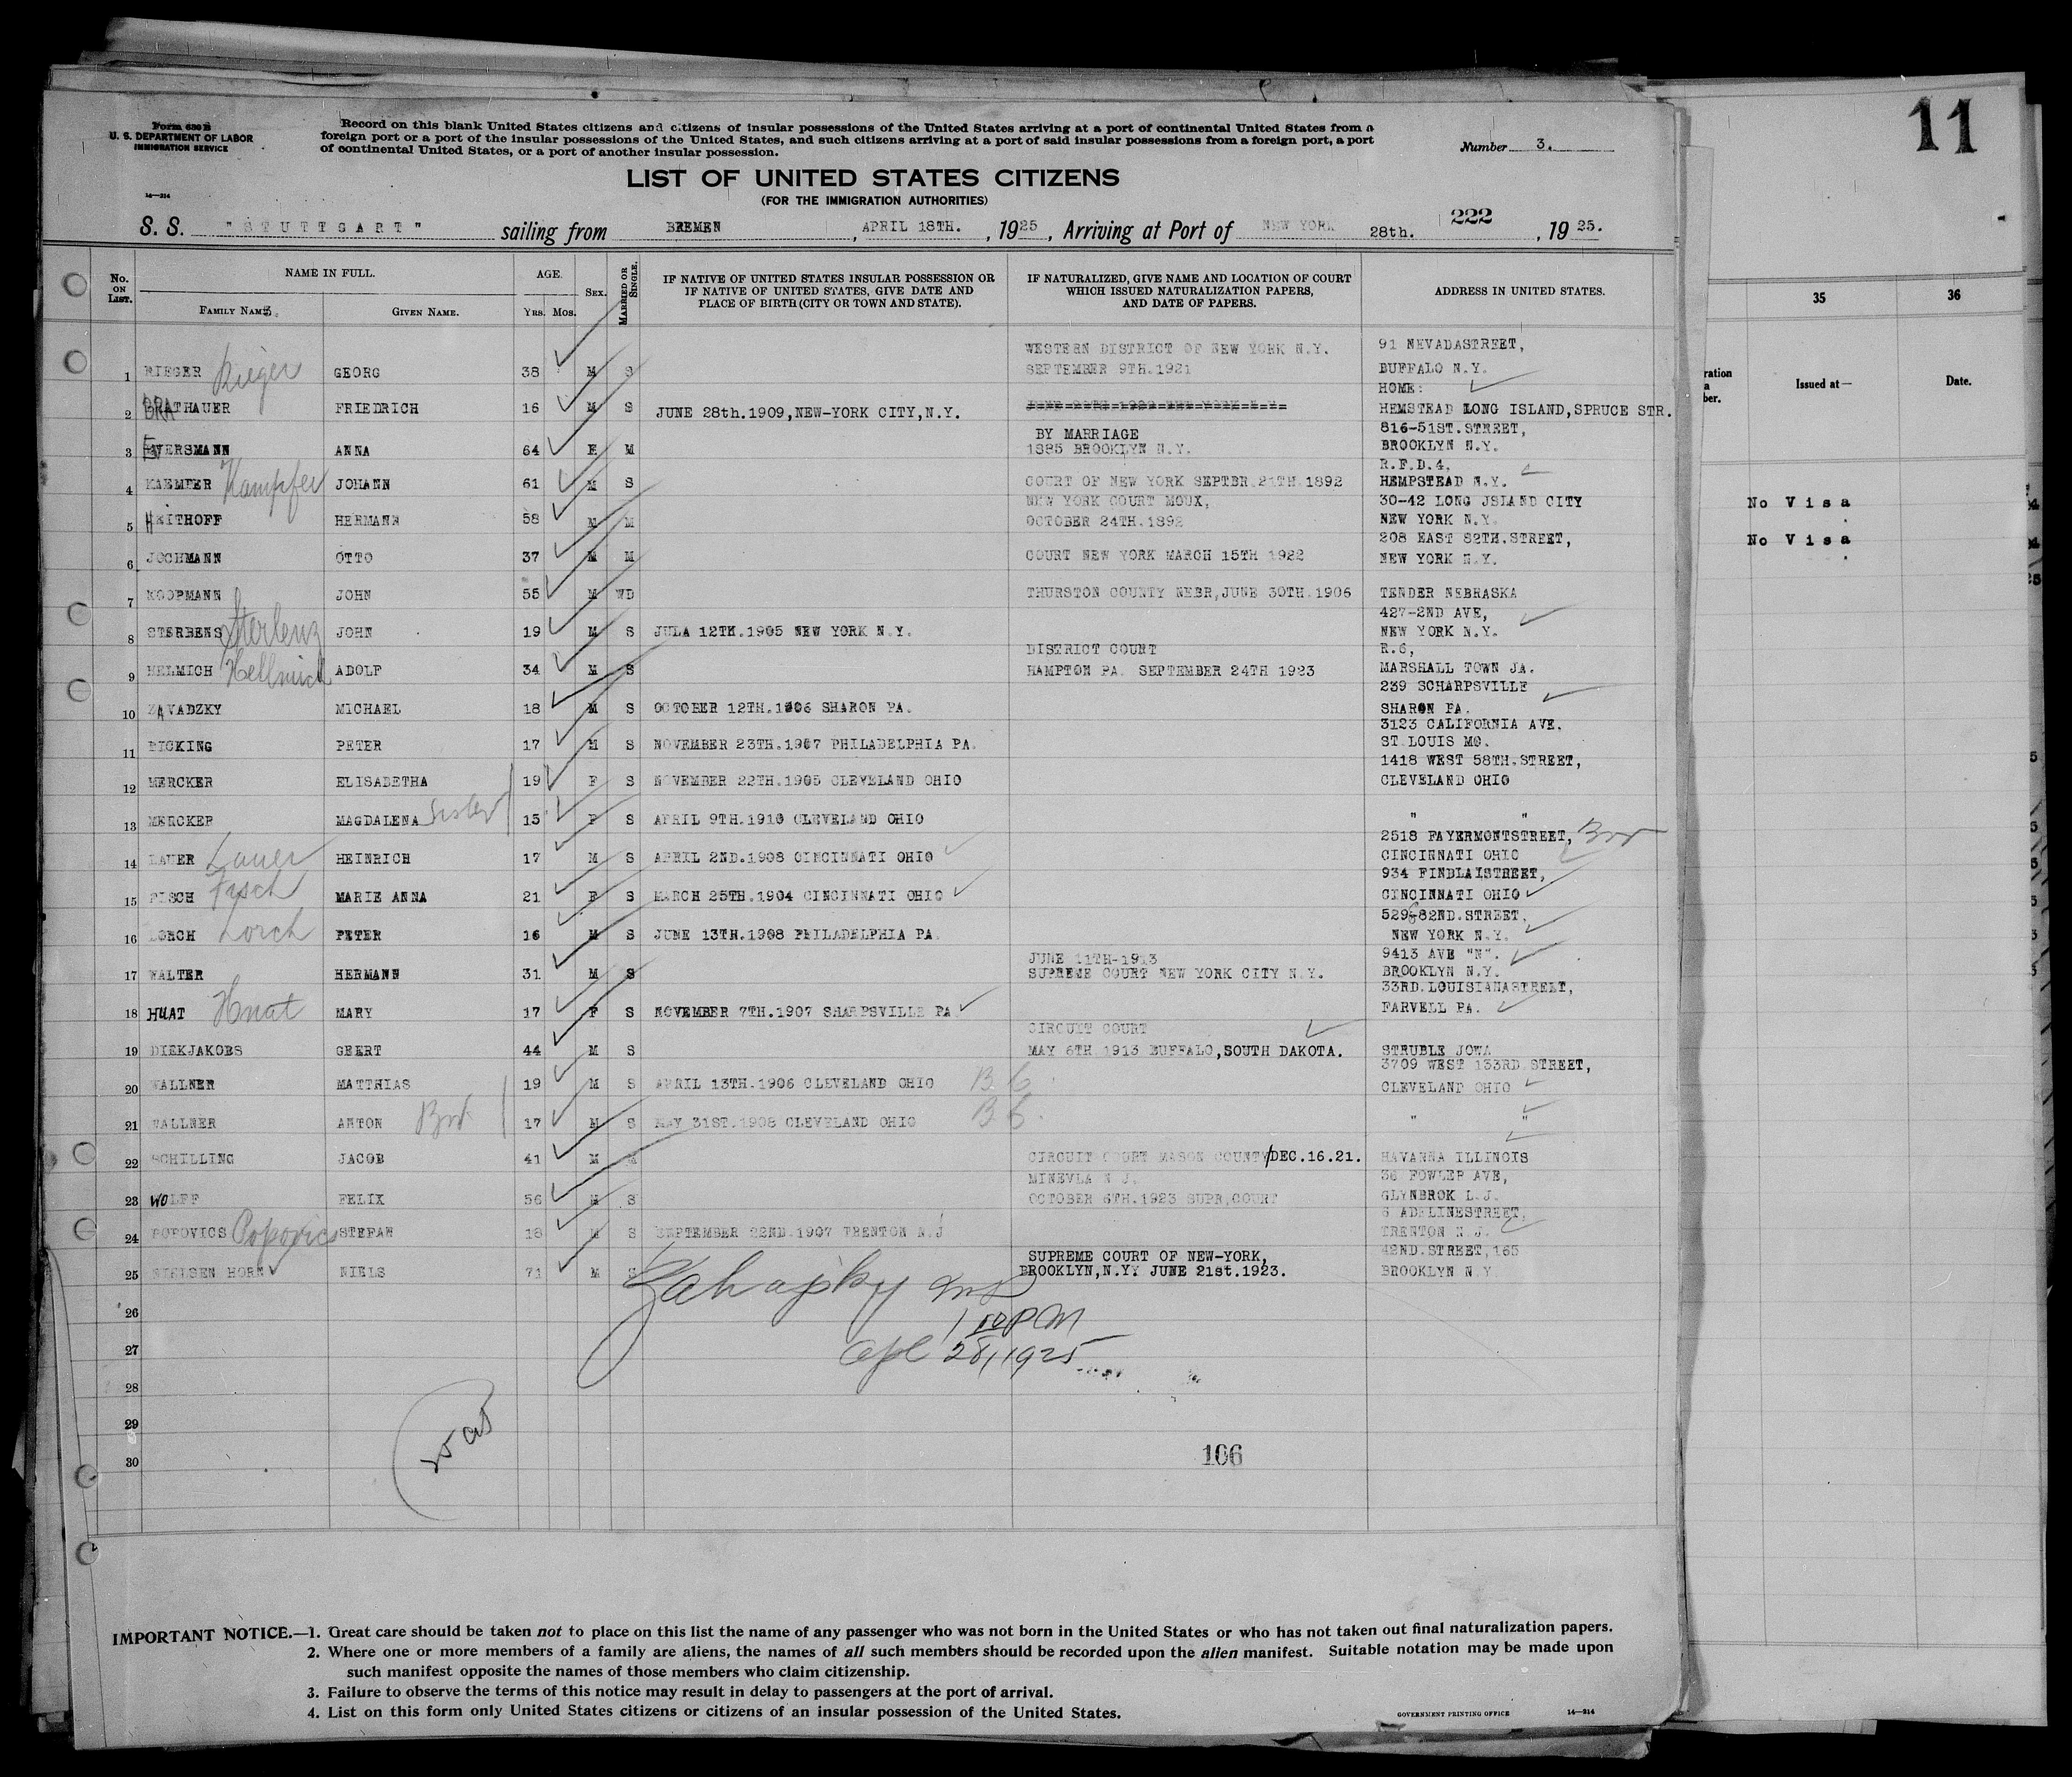 11
Form 630 B
U. S. DEPARTMENT OF LABOR
IMMIGRATION SERVICE
14—214
Record on this blank United States citizens and citizens of insular possessions of the United States arriving at a port of continental United States from a
foreign port or a port of the insular possessions of the United States, and such citizens arriving at a port of said insular possessions from a foreign port, a port
of continental United States, or a port of another insular possession.
Number 3.
LIST OF UNITED STATES CITIZENS
(FOR THE IMMIGRATION AUTHORITIES)
222
S. S. "STUTTGART" sailing from BREMEN, APRIL 18TH., 1925, Arriving at Port of NEW YORK 28th., 1925.
No. ON LIST. NAME IN FULL. FAMILY NAME. GIVEN NAME. AGE. YRS. MOS. SEX. MARRIED OR SINGLE. IF NATIVE OF UNITED STATES INSULAR POSSESSION OR IF NATIVE OF UNITED STATES, GIVE DATE AND PLACE OF BIRTH (CITY OR TOWN AND STATE). IF NATURALIZED, GIVE NAME AND LOCATION OF COURT WHICH ISSUED NATURALIZATION PAPERS, AND DATE OF PAPERS. ADDRESS IN UNITED STATES.
35 36
ration a ber. Issued at— Date.
WESTERN DISTRICT OF NEW YORK N.Y. 91 NEVADASTREET,
1 RIEGER Rieger GEORG 38 M S SEPTEMBER 9TH.1921 BUFFALO N.Y.
HOME:
2 BRATHAUER FRIEDRICH 16 M S JUNE 28th.1909,NEW-YORK CITY,N.Y. HEMSTEAD LONG ISLAND,SPRUCE STR.
BY MARRIAGE 816-51ST.STREET,
3 EVERSMANN ANNA 64 F M 1885 BROOKLYN N.Y. BROOKLYN N.Y.
R.F.D.4.
4 KAEMPER Kampfer JOHANN 61 M S COURT OF NEW YORK SEPTBR.21TH.1892 HEMPSTEAD N.Y.
NEW YORK COURT MOUX, 30-42 LONG JSLAND CITY
No Visa
5 HEITHOFF HERMANN 58 M M OCTOBER 24TH.1892 NEW YORK N.Y.
208 EAST 82TH.STREET,
No Visa
6 JOCHMANN OTTO 37 M M COURT NEW YORK MARCH 15TH 1922 NEW YORK N.Y.
7 KOOPMANN JOHN 55 M WD THURSTON COUNTY NEBR,JUNE 30TH.1906 TENDER NEBRASKA
427-2ND AVE,
8 STERBENS Sterlenz JOHN 19 M S JULA 12TH.1905 NEW YORK N.Y. NEW YORK N.Y.
DISTRICT COURT R.6,
9 HELMICH Hellmich ADOLF 34 M S HAMPTON PA. SEPTEMBER 24TH 1923 MARSHALL TOWN JA.
239 SCHARPSVILLE
10 ZAVADZKY MICHAEL 18 M S OCTOBER 12TH.1906 SHARON PA. SHARON PA.
3123 CALIFORNIA AVE.
11 PICKING PETER 17 M S NOVEMBER 23TH.1907 PHILADELPHIA PA. ST.LOUIS MO.
1418 WEST 58TH.STREET,
12 MERCKER ELISABETHA 19 F S NOVEMBER 22TH.1905 CLEVELAND OHIO CLEVELAND OHIO
13 MERCKER MAGDALENA Sister 15 F S APRIL 9TH.1910 CLEVELAND OHIO " "
2518 FAYERMONTSTREET,
14 LAUER Lauer HEINRICH 17 M S APRIL 2ND.1908 CINCINNATI OHIO CINCINNATI OHIO
934 FINDLAISTREET,
15 FISCH Fisch MARIE ANNA 21 F S MARCH 25TH.1904 CINCINNATI OHIO CINCINNATI OHIO
82ND.STREET,
16 LORCH Lorch PETER 16 M S JUNE 13TH.1908 PHILADELPHIA PA. NEW YORK N.Y.
JUNE 11TH-1913 9413 AVE "N".
17 WALTER HERMANN 31 M S SUPREME COURT NEW YORK CITY N.Y. BROOKLYN N.Y.
33RD.LOUISIANASTREET,
18 HUAT Hnat MARY 17 F S NOVEMBER 7TH.1907 SHARPSVILLE PA. FARVELL PA.
CIRCUIT COURT
19 DIEKJAKOBS GEERT 44 M S MAY 6TH 1913 BUFFALO,SOUTH DAKOTA. STRUBLE JOWA
3709 WEST 133RD.STREET,
20 WALLNER MATTHIAS 19 M S APRIL 13TH.1906 CLEVELAND OHIO B C CLEVELAND OHIO
21 WALLNER ANTON Bro 17 M S MAY 31ST.1908 CLEVELAND OHIO B C " "
22 SCHILLING JACOB 41 M M CIRCUIT COURT MASON COUNTY/DEC.16.21. HAVANNA ILLINOIS
MINEVLA N J. 36 FOWLER AVE,
23 WOLFF FELIX 56 M S OCTOBER 6TH.1923 SUPR,COURT GLYNBROK L.J.
6 ADELINESTREET,
24 POPOVICS Popovics STEFAN 18 M S SEPTEMBER 22ND.1907 TRENTON N.J TRENTON N.J.
SUPREME COURT OF NEW-YORK, 42ND.STREET,165
25 NIELSEN HORN NIELS 71 M S BROOKLYN,N.YY JUNE 21st.1923. BROOKLYN N.Y.
26
1 50 PM
27 Apl 28, 1925
28
29
30
106
IMPORTANT NOTICE.—1. Great care should be taken not to place on this list the name of any passenger who was not born in the United States or who has not taken out final naturalization papers.
2. Where one or more members of a family are aliens, the names of all such members should be recorded upon the alien manifest. Suitable notation may be made upon
such manifest opposite the names of those members who claim citizenship.
3. Failure to observe the terms of this notice may result in delay to passengers at the port of arrival.
4. List on this form only United States citizens or citizens of an insular possession of the United States.
GOVERNMENT PRINTING OFFICE 14—214